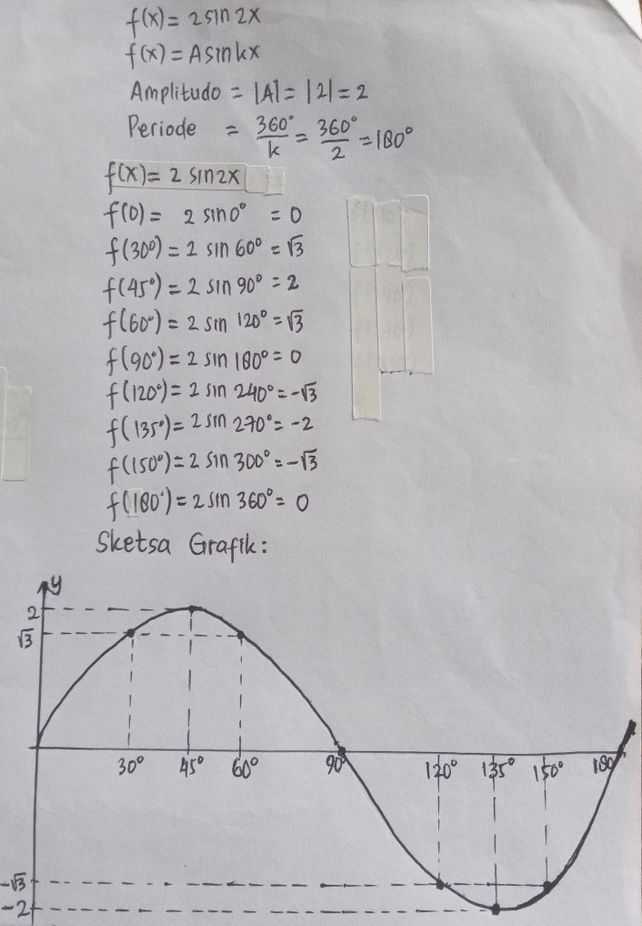 f(x) = 2 sin 2x
f(x) = A sin kx
Amplitudo = |A| = |2| = 2
Periode = 360°/k = 360°/2 = 180°
f(x) = 2 sin 2x
f(0) = 2 sin 0° = 0
f(30°) = 2 sin 60° = √3
f(45°) = 2 sin 90° = 2
f(60°) = 2 sin 120° = √3
f(90°) = 2 sin 180° = 0
f(120°) = 2 sin 240° = -√3
f(135°) = 2 sin 270° = -2
f(150°) = 2 sin 300° = -√3
f(180°) = 2 sin 360° = 0
Sketsa Grafik:
y
2
√3
30° 45° 60° 90° 120° 135° 150° 180
-√3
-2